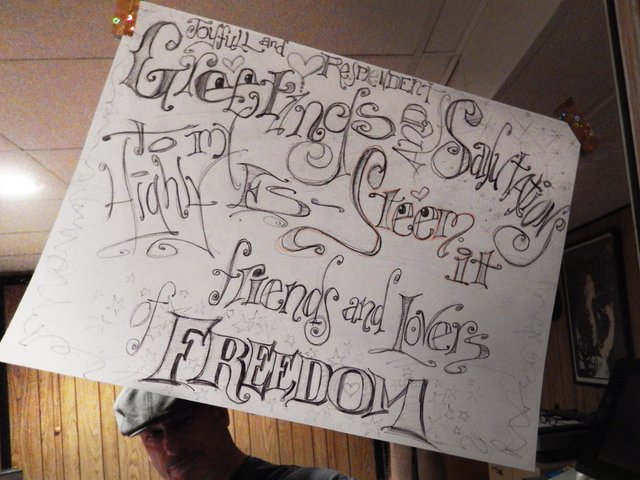 Joyfull and Resplendent
Greetings AND Salutations
To my
Highly ES-Steem it
friends and Lovers
of
FREEDOM